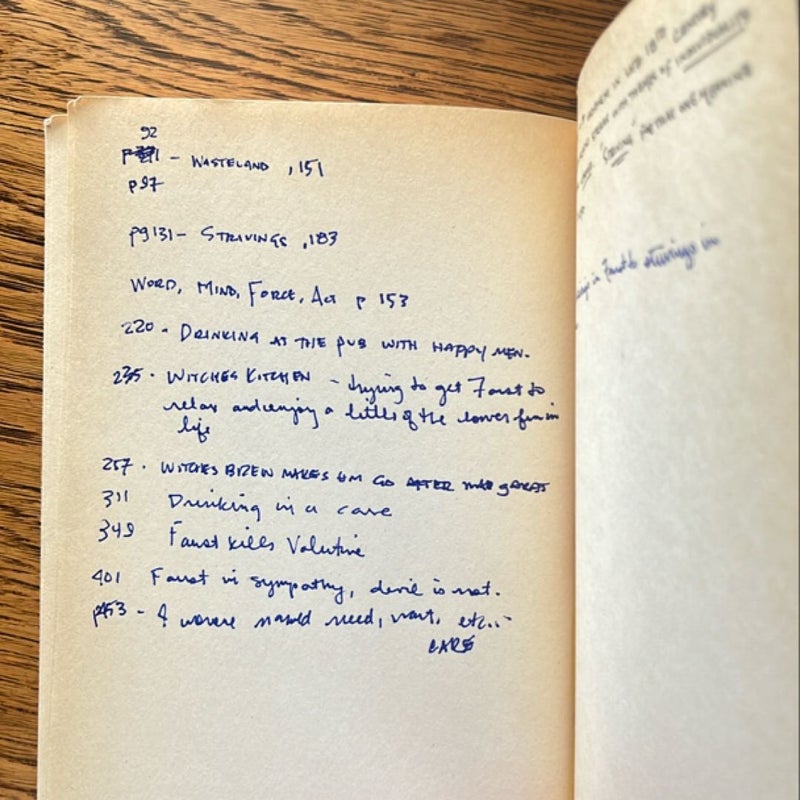 92
- WASTELAND , 151
p 97
pg 131 - STRIVINGS , 183
WORD, MIND, FORCE, ACT p 153
220 - DRINKING AT THE PUB WITH HAPPY MEN.
235 - WITCHES KITCHEN - trying to get Faust to
relax and enjoy a little of the lower fun in
life
257 - WITCHES BREW MAKES HIM GO AFTER
311 Drinking in a cave
349 Faust kills Valentine
401 Faust in sympathy, devil is not.
p453 - 4 women named need, want, etc...
CARE
18TH CENTURY
INDIVIDUALITY
in Faust to strivings in